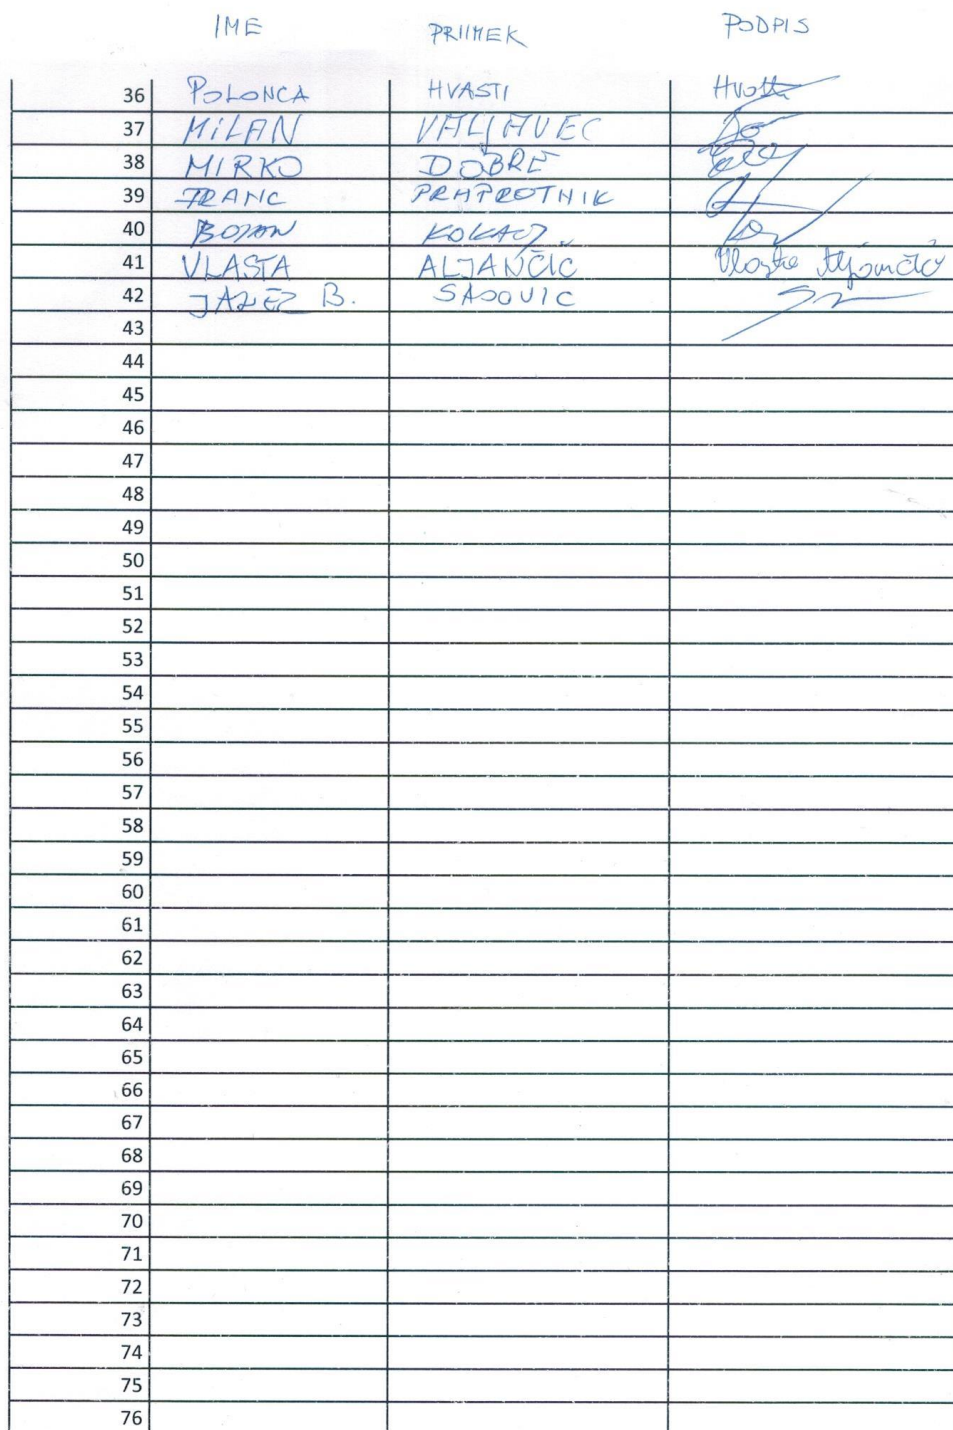 IME PRIIMEK PODPIS
36 POLONCA HVASTI
37 MILAN VALJAVEC
38 MIRKO DOBRE
39 FRANC PRAPROTNIK
40 BOJAN
41 VLASTA ALJANČIČ Vlasta Aljančič
42 JANEZ B. SADOVIC
43
44
45
46
47
48
49
50
51
52
53
54
55
56
57
58
59
60
61
62
63
64
65
66
67
68
69
70
71
72
73
74
75
76